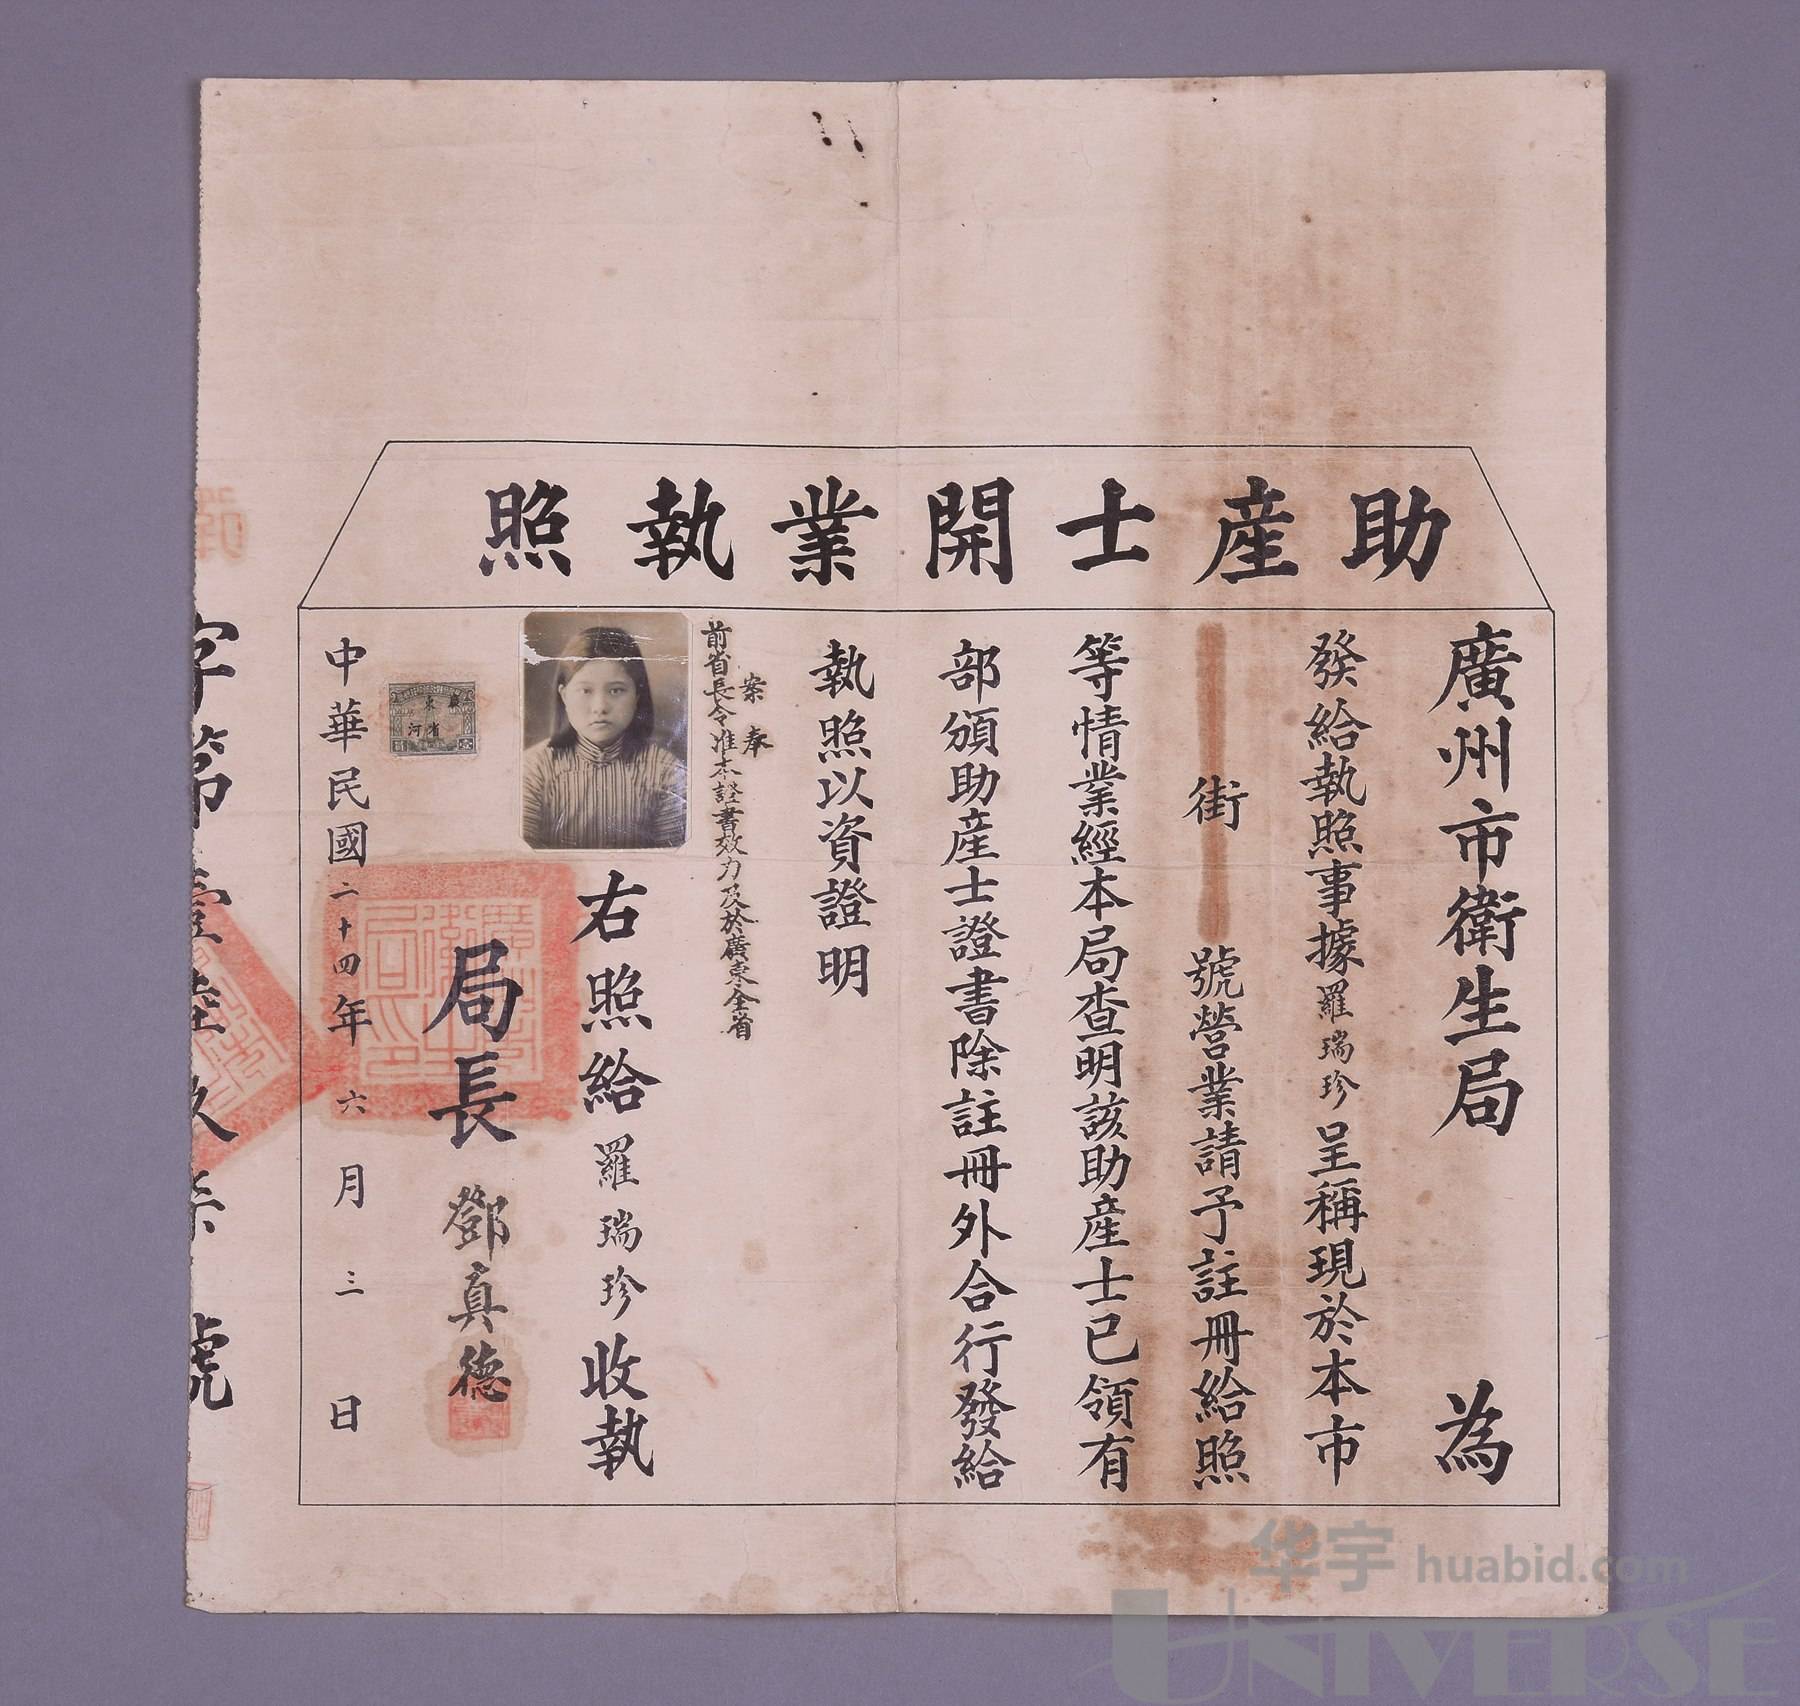 助產士開業執照
廣州市衛生局 為
發給執照事據羅瑞珍呈稱現於本市
街 號營業請予註冊給照
等情業經本局查明該助產士已領有
部頒助產士證書除註冊外合行發給
執照以資證明
案奉
前省長令准本證書效力及於廣東全省
右照給羅瑞珍收執
局長 鄧真德
中華民國二十四年六月三日
字第壹陸玖柒號
廣東省河
华宇 huabid.com
UNIVERSE